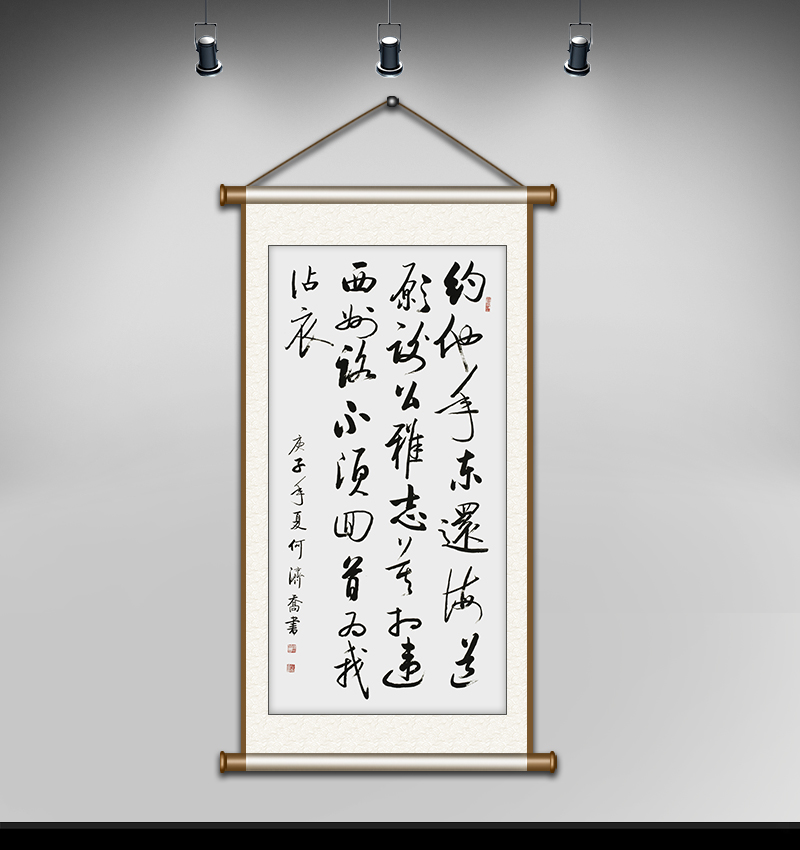 约他年東還海道
願謝公雅志莫相違
西州路不須回首為我
沾衣
庚子年夏何濟喬書